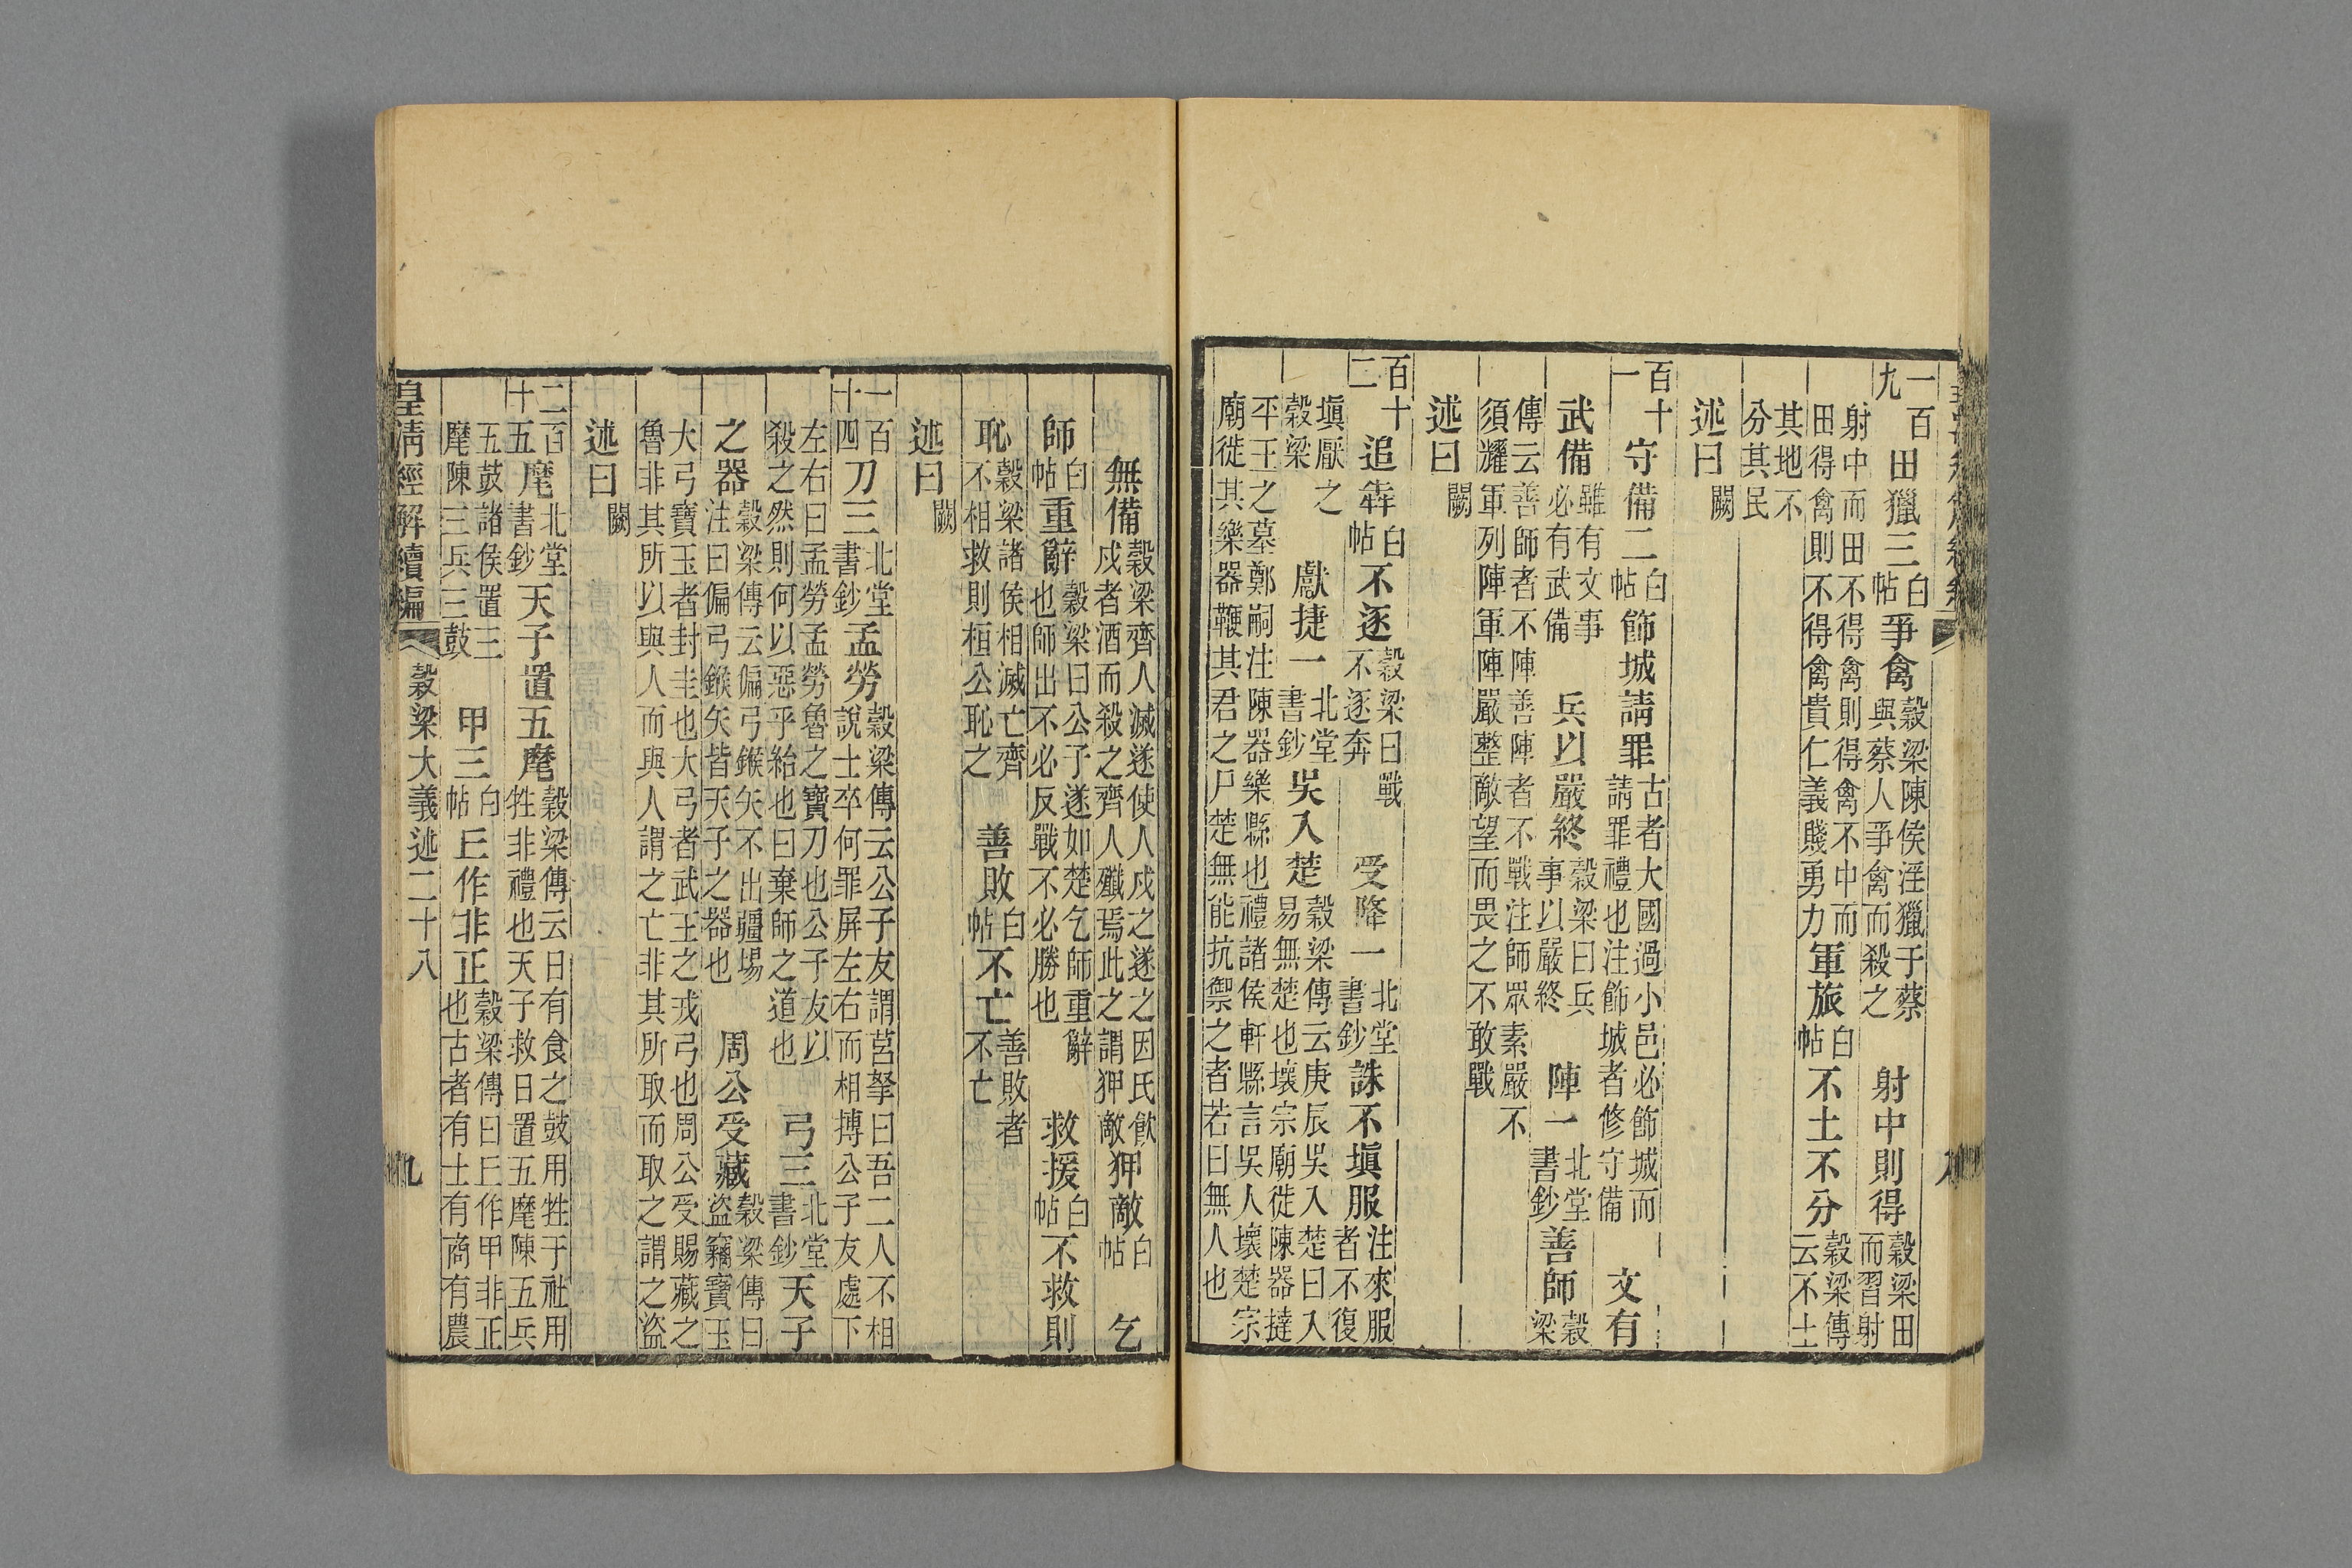 一百九田獵三白帖爭禽穀梁陳侯淫獵于蔡與蔡人爭禽而殺之射中則得穀梁田而習射
射中而田不得禽則得禽不中而田得禽則不得禽貴仁義賤勇力軍旅白帖不土不分穀梁傳云不土
其地不分其民
述曰闕
百十一守備二白帖飾城請罪古者大國過小邑必飾城而請罪禮也注飾城者修守備文有
武備雖有文事必有武備兵以嚴終穀梁曰兵事以嚴終陣一北堂書鈔善師穀梁
傳云善師者不陣善陣者不戰注師眾素嚴不須耀軍列陣軍陣嚴整敵望而畏之不敢戰
述曰闕
百十二追犇白帖不逐穀梁曰戰不逐奔受降一北堂書鈔誅不塡服注來服者不復
塡厭之穀梁獻捷一北堂書鈔吳入楚穀梁傳云庚辰吳入楚曰入易無楚也壞宗廟徙陳器撻
平王之墓鄭嗣注陳器樂縣也禮諸侯軒縣言吳人壞楚宗廟徙其樂器鞭其君之尸楚無能抗禦之者若曰無人也
無備穀梁齊人滅遂使人戍之遂之因氏飲戍者酒而殺之齊人殲焉此之謂狎敵狎敵白帖乞
師白帖重辭穀梁曰公子遂如楚乞師重辭也師出不必反戰不必勝也救援白帖不救則
恥穀梁諸侯相滅亡齊不相救則桓公恥之善敗白帖不亡善敗者不亡
述曰闕
一百十四刀三北堂書鈔孟勞穀梁傳云公子友謂莒挐曰吾二人不相說士卒何罪屏左右而相搏公子友處下
左右曰孟勞孟勞魯之寶刀也公子友以殺之然則何以惡乎紿也曰棄師之道也弓三北堂書鈔天子
之器穀梁傳云偏弓鍭矢不出疆場注曰偏弓鍭矢皆天子之器也周公受藏穀梁傳曰盜竊寶玉
大弓寶玉者封圭也大弓者武王之戎弓也周公受賜藏之魯非其所以與人而與人謂之亡非其所取而取之謂之盜
述曰闕
一百十五麾北堂書鈔天子置五麾穀梁傳云日有食之鼓用牲于社用牲非禮也天子救日置五麾陳五兵
五鼓諸侯置三麾陳三兵三鼓甲三白帖丘作非正穀梁傳曰丘作甲非正也古者有士有商有農
皇清經解續編 穀梁大義述二十八 九